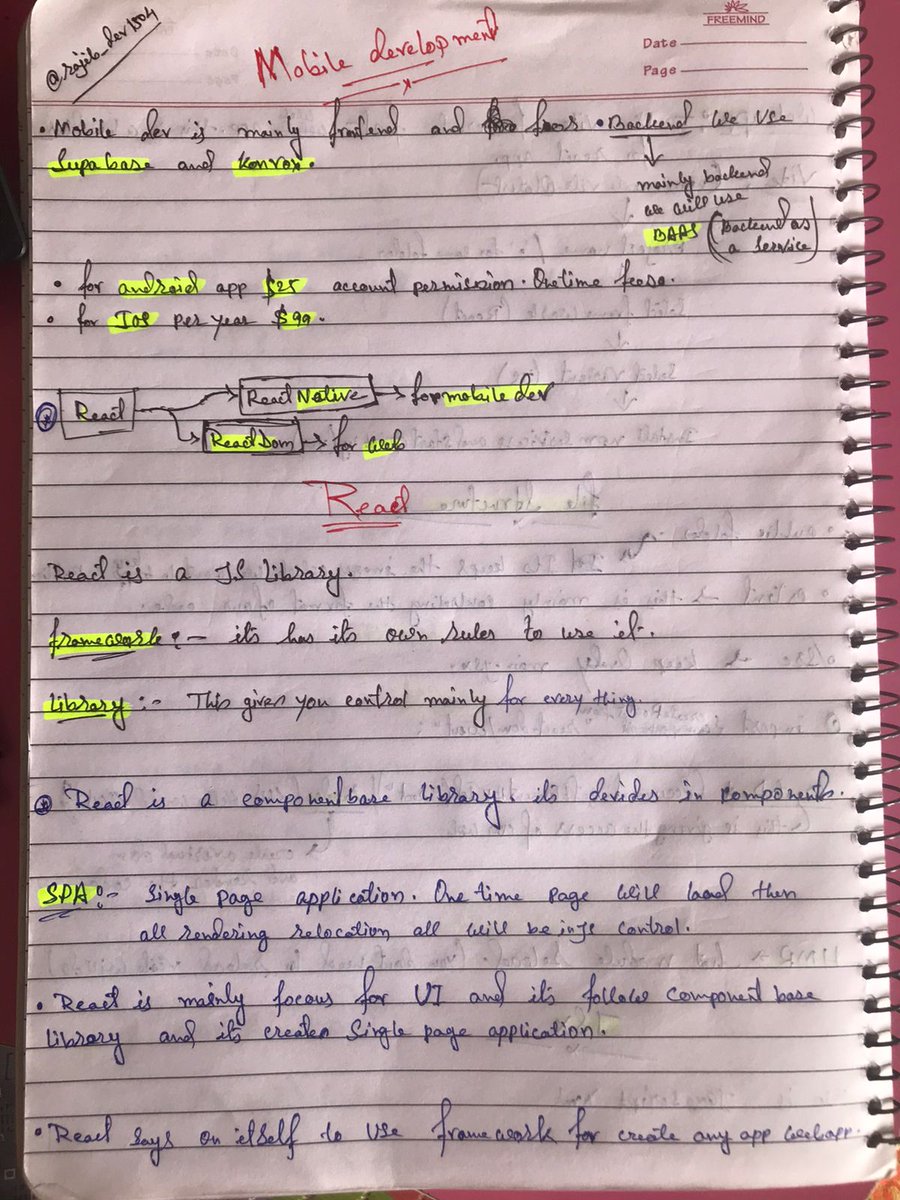 @rajib_dev1504
FREEMIND
Date
Page
Mobile development
• Mobile dev is mainly frontend and for • Backend we use
Supabase and Konvox.
mainly backend
we will use
BAAS (Backend as
a service)
• for android app $25 account permission. One time feesa.
• for IOS per year $99.
React
React Native → for mobile dev
React Dom → for web
React
React is a JS Library.
framework :- its has its own rules to use it.
Library :- This gives you control mainly for every thing.
React is a componentbase library. its devides in components.
SPA :- Single page application. One time page will load then
all rendering relocation all will be in js control.
• React is mainly focous for UI and its follow component base
library and its creates Single page application.
• React says on itself to use framework for create any app webapp.